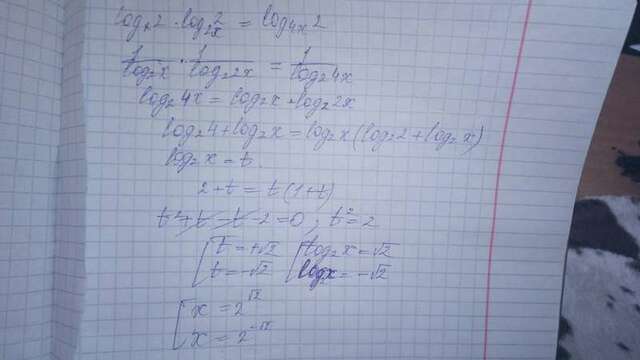 log_x 2 · log_{2x} 2 = log_{4x} 2
1/log_2 x · 1/log_2 2x = 1/log_2 4x
log_2 4x = log_2 x · log_2 2x
log_2 4 + log_2 x = log_2 x (log_2 2 + log_2 x)
log_2 x = t.
2 + t = t (1 + t)
t² + t - t - 2 = 0 ; t² = 2
[ t = +√2 [ log_2 x = √2
t = -√2 log x = -√2
[ x = 2^{√2}
x = 2^{-√2}